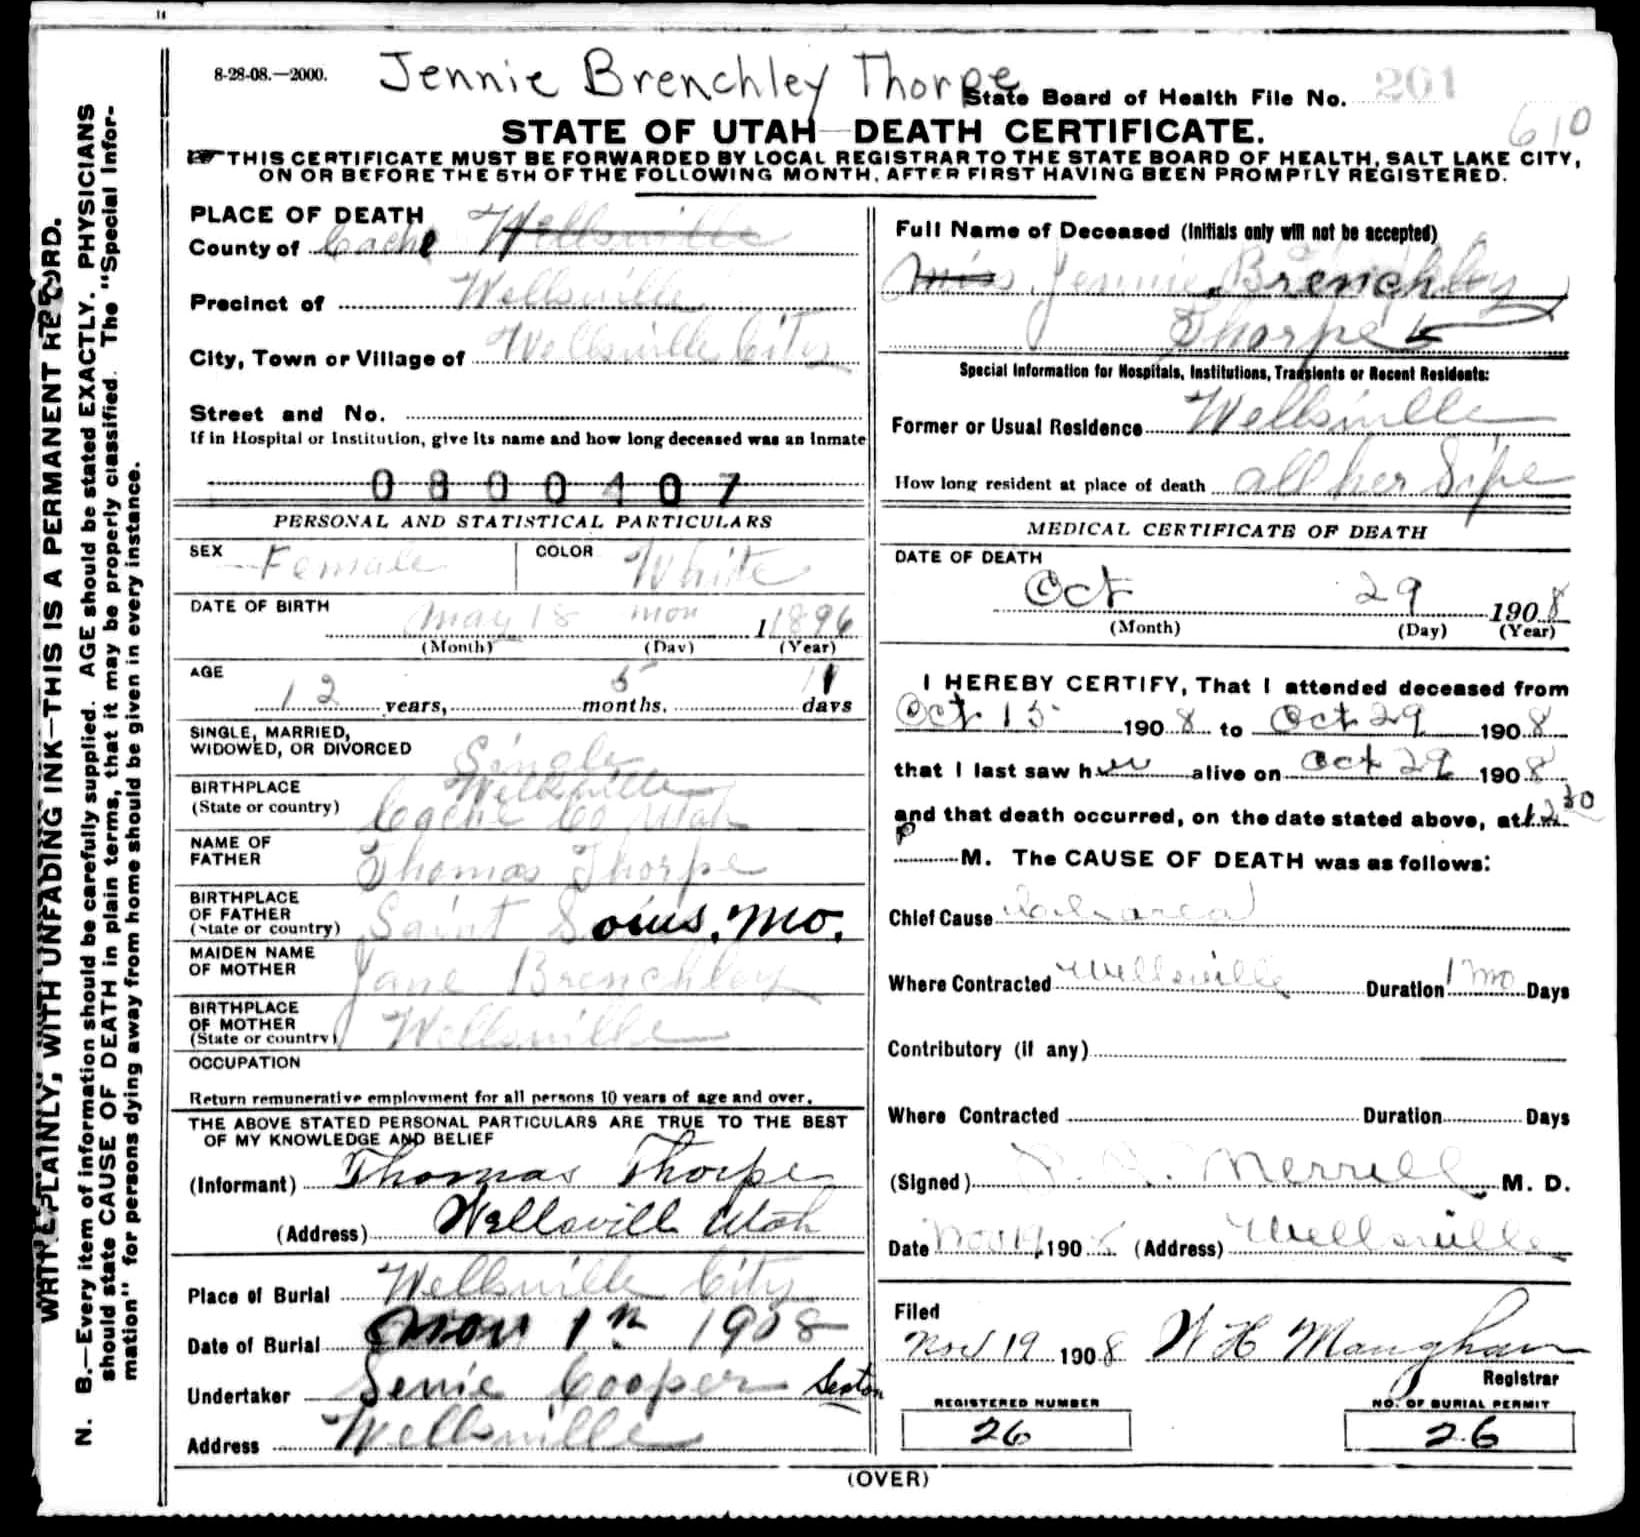 8-28-08.—2000.
Jennie Brenchley Thorpe
State Board of Health File No. 201
610
STATE OF UTAH—DEATH CERTIFICATE.
THIS CERTIFICATE MUST BE FORWARDED BY LOCAL REGISTRAR TO THE STATE BOARD OF HEALTH, SALT LAKE CITY,
ON OR BEFORE THE 5TH OF THE FOLLOWING MONTH, AFTER FIRST HAVING BEEN PROMPTLY REGISTERED.
WRITE PLAINLY, WITH UNFADING INK—THIS IS A PERMANENT RECORD.
N. B.—Every item of information should be carefully supplied. AGE should be stated EXACTLY. PHYSICIANS
should state CAUSE OF DEATH in plain terms, that it may be properly classified. The "Special Infor-
mation" for persons dying away from home should be given in every instance.
PLACE OF DEATH
County of Cache Wellsville
Precinct of Wellsville
City, Town or Village of Wellsville City
Street and No.
If in Hospital or Institution, give its name and how long deceased was an Inmate
0800407
PERSONAL AND STATISTICAL PARTICULARS
SEX Female COLOR White
DATE OF BIRTH May 18 mon 1 1896
(Month) (Day) (Year)
AGE
12 years, 5 months. 11 days
SINGLE, MARRIED,
WIDOWED, OR DIVORCED Single
BIRTHPLACE Wellsville
(State or country) Cache Co Utah
NAME OF
FATHER Thomas Thorpe
BIRTHPLACE
OF FATHER
(State or country) Saint Louis, Mo.
MAIDEN NAME
OF MOTHER Jane Brenchley
BIRTHPLACE
OF MOTHER
(State or country) Wellsville
OCCUPATION
Return remunerative employment for all persons 10 years of age and over.
THE ABOVE STATED PERSONAL PARTICULARS ARE TRUE TO THE BEST
OF MY KNOWLEDGE AND BELIEF
(Informant) Thomas Thorpe
(Address) Wellsville Utah
Place of Burial Wellsville City
Date of Burial Nov 1 1908
Undertaker Cooper Sexton
Address Wellsville
Full Name of Deceased (Initials only will not be accepted)
Miss Jennie Brenchley
Thorpe
Special Information for Hospitals, Institutions, Transients or Recent Residents:
Former or Usual Residence Wellsville
How long resident at place of death all her Life
MEDICAL CERTIFICATE OF DEATH
DATE OF DEATH
Oct 29 1908
(Month) (Day) (Year)
I HEREBY CERTIFY, That I attended deceased from
Oct. 15 1908 to Oct 29 1908
that I last saw her alive on Oct 29 1908
and that death occurred, on the date stated above, at 12 30
P M. The CAUSE OF DEATH was as follows:
Chief Cause
Where Contracted Wellsville Duration 1 mo Days
Contributory (if any)
Where Contracted Duration Days
(Signed) Merrill M. D.
Date Nov 19, 190 (Address) Wellsville
Filed
Nov 19 1908 W H Maughan
Registrar
REGISTERED NUMBER
26
NO. OF BURIAL PERMIT
26
(OVER)